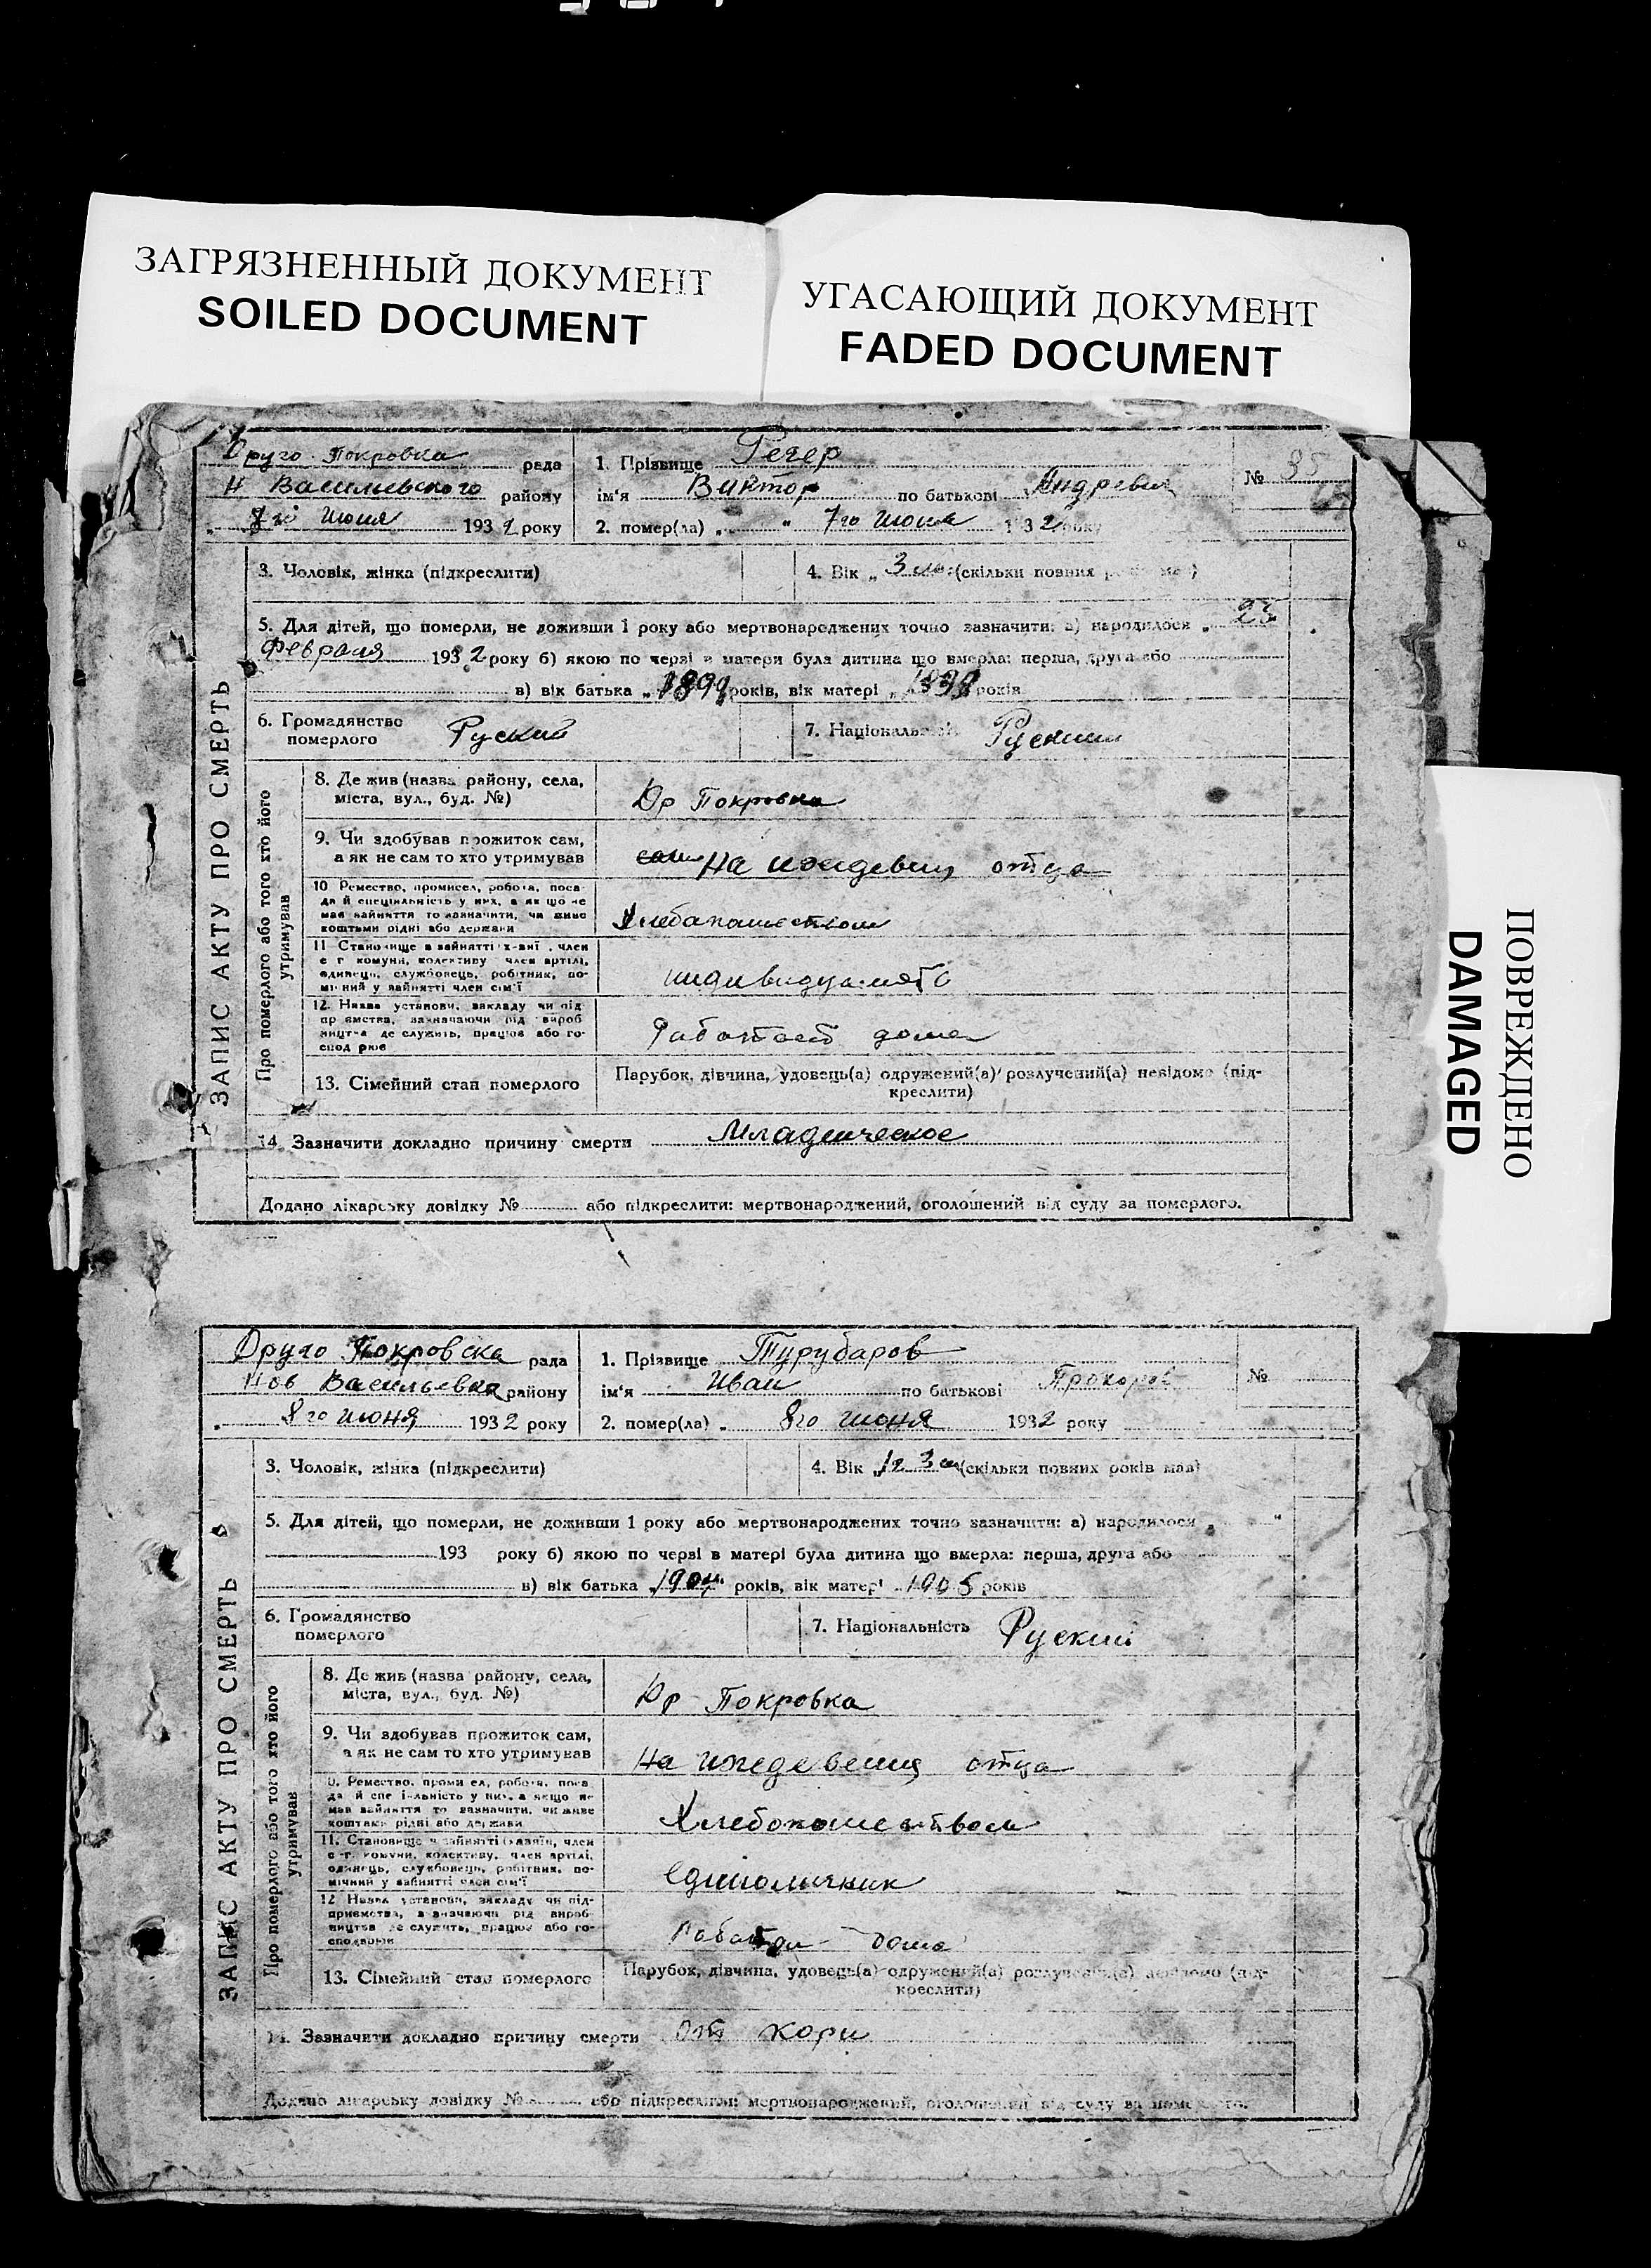 ЗАГРЯЗНЕННЫЙ ДОКУМЕНТ
SOILED DOCUMENT
УГАСАЮЩИЙ ДОКУМЕНТ
FADED DOCUMENT
ПОВРЕЖДЕНО
DAMAGED
ЗАПИС АКТУ ПРО СМЕРТЬ
Друго Покровка рада
Н Васильевского району
8го июня 1932 року
1. Прізвище Регер
ім'я Виктор по батькові Андревич
2. помер(ла) „ " 7го июня 1932 року
№ 35
3. Чоловік, жінка (підкреслити)
4. Вік „ 3 (скільки повних
5. Для дітей, що померли, не доживши 1 року або мертвонароджених точно зазначити: а) народилося „ 23
Февраля 1932 року б) якою по черзі в матери була дитина що вмерла: перша, друга або
в) вік батька „ років, вік матері „ років
6. Громадянство померлого Руский
7. Національність Руский
Про померлого або того хто його утримував
8. Де жив (назва району, села,
міста, вул., буд. №)
Др Покровка
9. Чи здобував прожиток сам,
а як не сам то хто утримував
На иждевии отца
10 Ремество, промисел, робота, поса-
да й спеціяльність у них, а як що не
мав зайняття то зазначити, чи живе
коштами рідні або держави
Хлебапашеством
11 Становище в зайнятті: х-аві , член
с г комуни, колективу член артілі,
одинець, службовець, робітник, по-
мічний у зайнятті член сім'ї
12. Назва установи, закладу чи під
приємства, зазначаючи рід вироб
ництва де служить, працює або го-
сподарює
Работает дома
13. Сімейний стан померлого
Парубок, дівчина, удовець(а) одружений(а) розлучений(а) невідомо (під-
креслити)
14. Зазначити докладно причину смерти Младенческое
Додано лікарську довідку № або підкреслити: мертвонароджений, оголошений від суду за померлого.
ЗАПИС АКТУ ПРО СМЕРТЬ
Друго Покровска рада
Нов Васильевка району
„ 8го июня 1932 року
1. Прізвище Турубаров
ім'я Иван по батькові Прохоров
2. помер(ла) „ 8го июня 1932 року
№
3. Чоловік, жінка (підкреслити)
4. Вік „ (скільки повних років мав)
5. Для дітей, що померли, не доживши 1 року або мертвонароджених точно зазначити: а) народилося „ "
193 року б) якою по черзі в матері була дитина що вмерла: перша, друга або
в) вік батька „ 1904 років, вік матері „ 1905 років
6. Громадянство померлого
7. Національність Руский
Про померлого або того хто його утримував
8. Де жив (назва району, села,
міста, вул., буд. №)
Др Покровка
9. Чи здобував прожиток сам,
а як не сам то хто утримував
На иждевении отца
Ремество, промисел, робота, поса
да й спеціяльність у них, а якщо не
мав зайняття то зазначити, чи живе
коштами рідні або держави
Хлебопашеством
11. Становище в зайнятті: хазяїн, член
с-г. комуни, колективу, член артілі,
одинець, службовець, робітник, по-
мічний у зайнятті член сім'ї
Единоличник
12. Назва установи, закладу чи під-
приємства, зазначаючи рід вироб
ництва де служить, працює або го-
сподарює
дома
13. Сімейний стан померлого
Парубок, дівчина, удовець(а) одружений(а) розлучений(а) невідомо (під-
креслити)
14. Зазначити докладно причину смерти От кори
Додано лікарську довідку № або підкреслити: мертвонароджений, оголошений від суду за померлого.